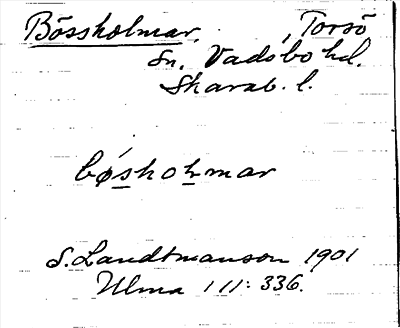 Bössholmar, Torsö
Sn. Vadsbo hd.
Skarab. l.
bǿsholmar
S. Landtmanson 1901
Ulma 111:336.